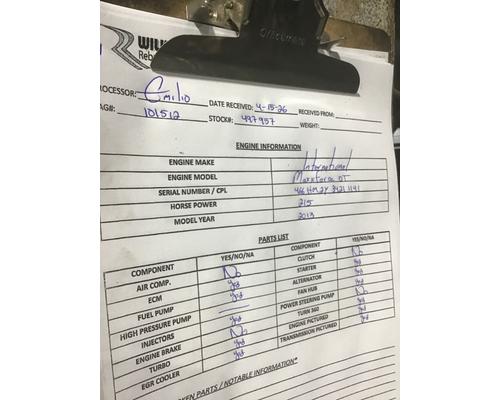 WILK
Reb
OFFICEMATE
ROCESSOR: Emilio DATE RECEIVED: 4-15-26 RECEIVED FROM:
AG#: 101512 STOCK#: 497957 WEIGHT:
ENGINE INFORMATION
ENGINE MAKE International
ENGINE MODEL Maxxforce DT
SERIAL NUMBER / CPL
HORSE POWER 215
MODEL YEAR 2013
PARTS LIST
COMPONENT YES/NO/NA COMPONENT YES/NO/NA
AIR COMP. No CLUTCH No
ECM yes STARTER yes
FUEL PUMP yes ALTERNATOR yes
HIGH PRESSURE PUMP — FAN HUB yes
INJECTORS yes POWER STEERING PUMP No
ENGINE BRAKE No TURN 360 yes
TURBO yes ENGINE PICTURED yes
EGR COOLER yes TRANSMISSION PICTURED
KEN PARTS / NOTABLE INFORMATION*